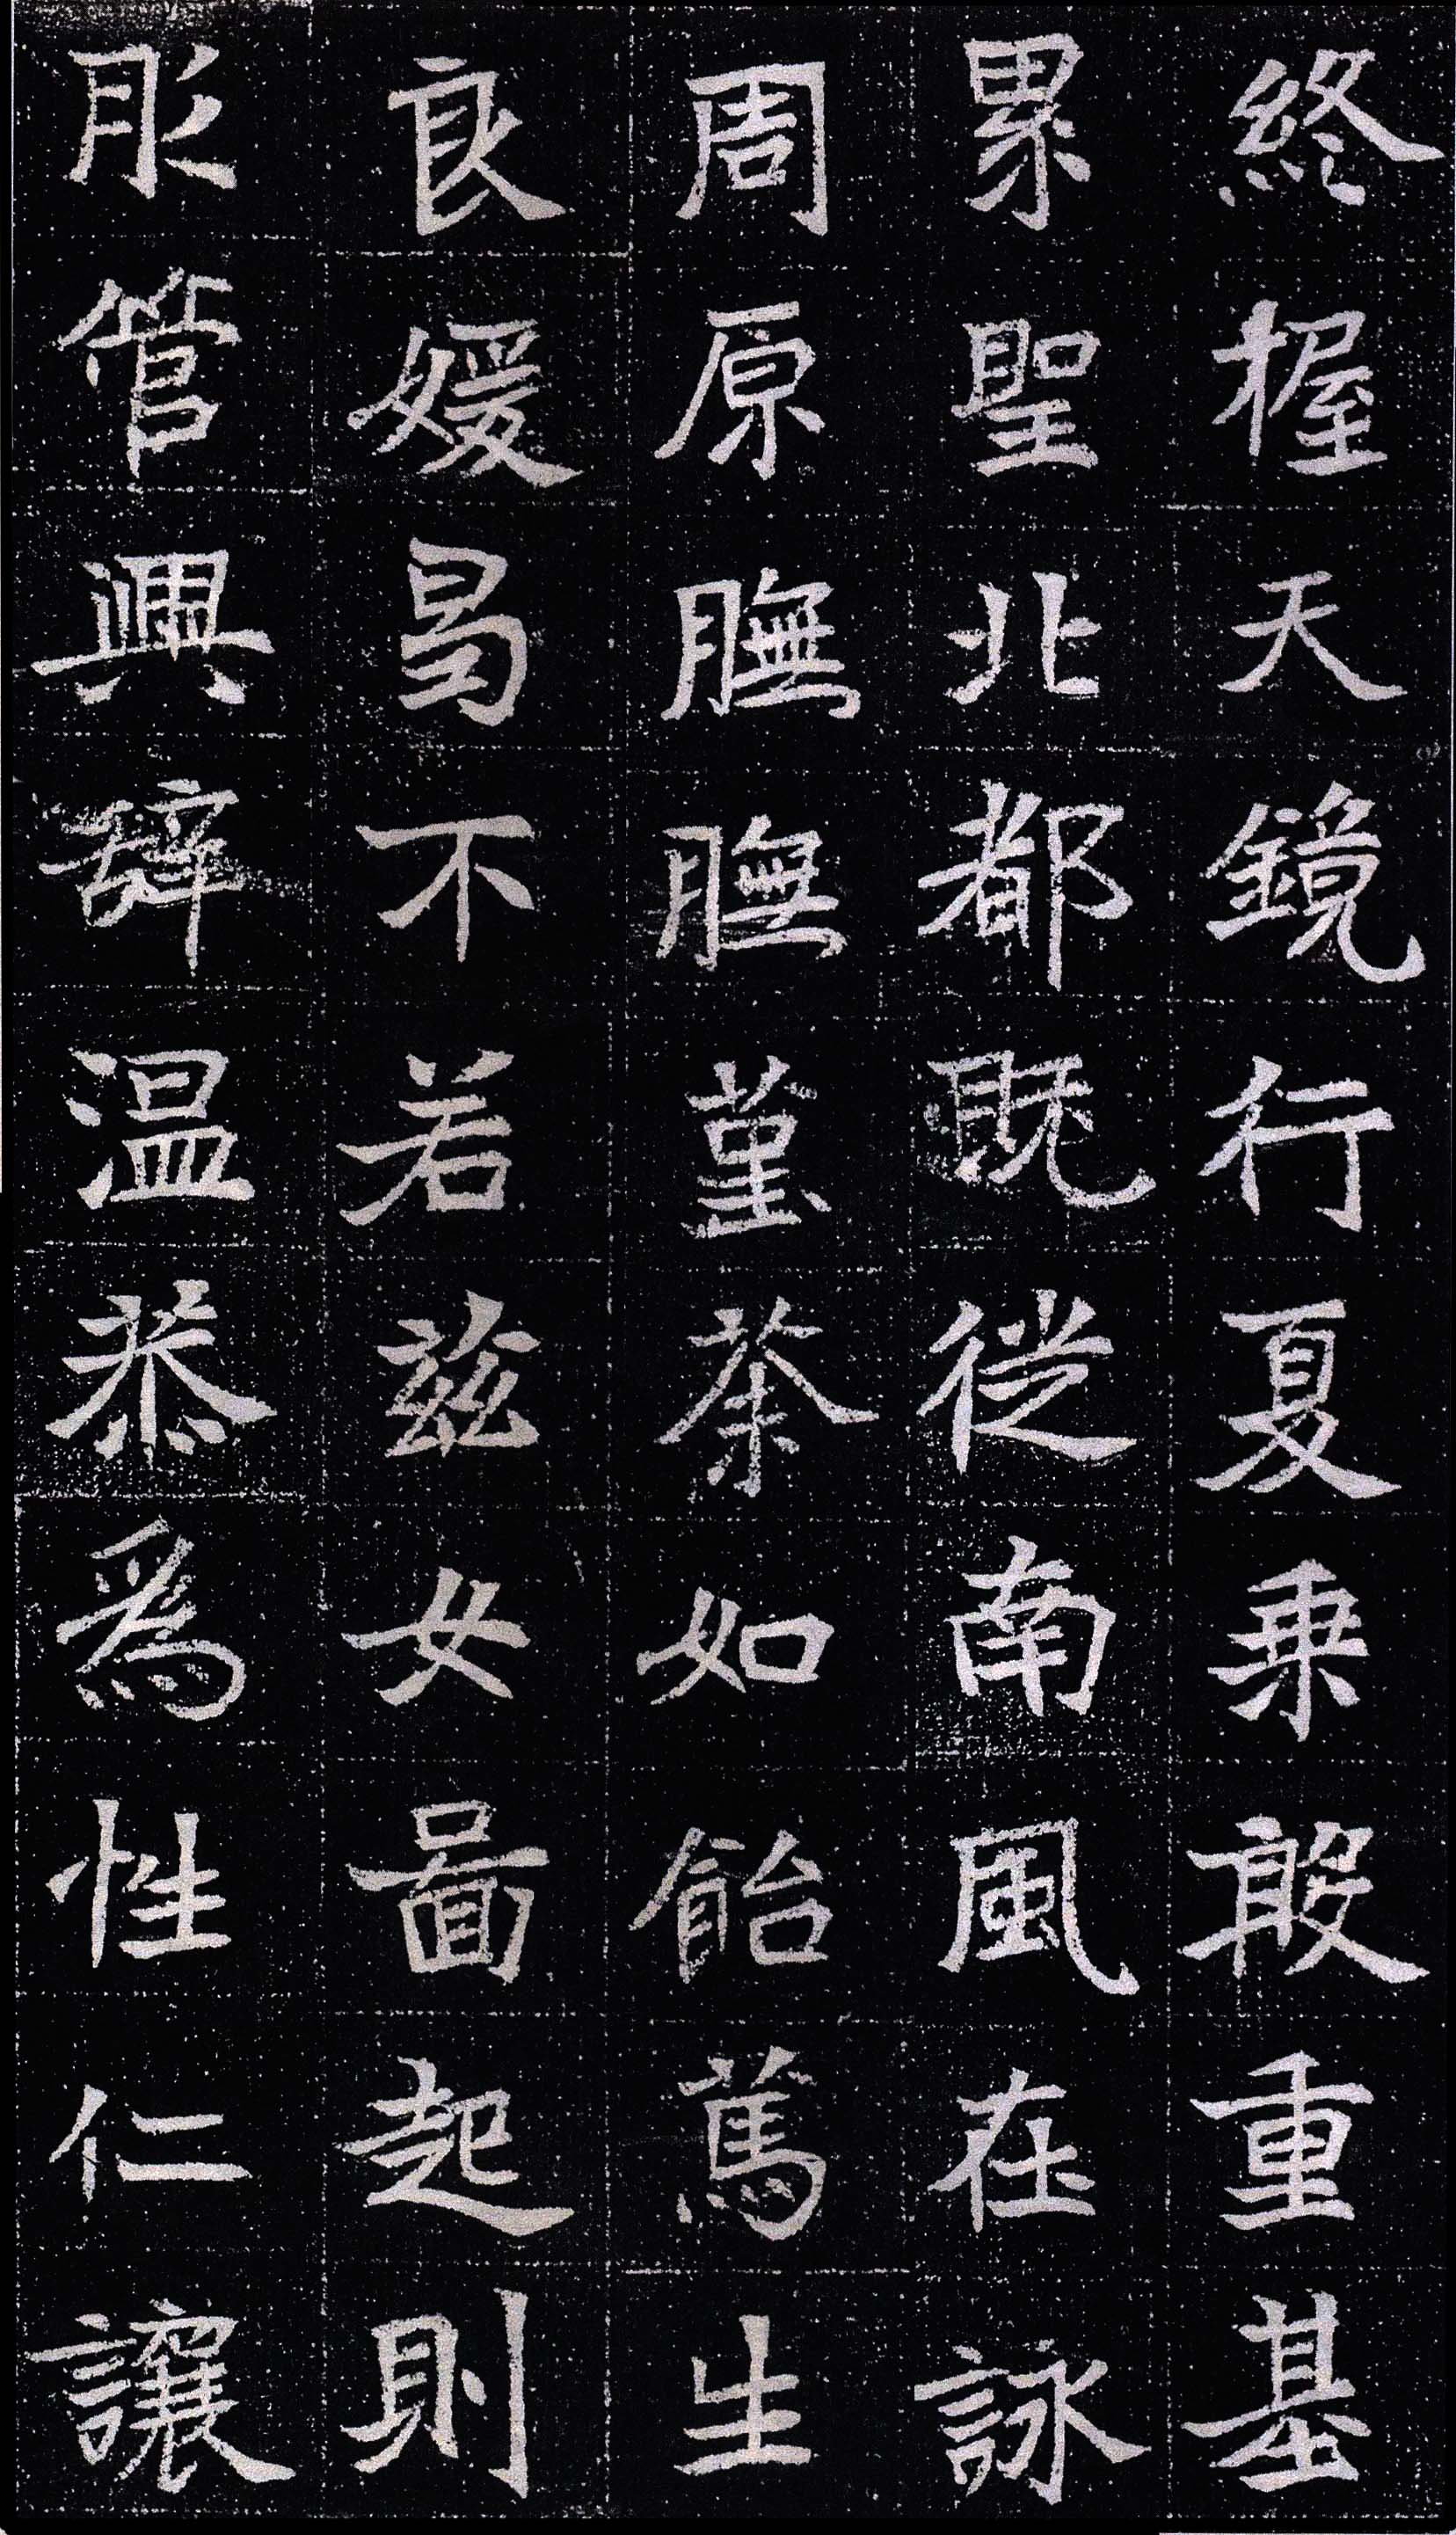 終握天鏡行夏乗殷重基
累聖北都既従南風在詠
周原膴膴堇荼如飴篤生
良媛曷不若茲女圖起則
彤管興辞温恭為性仁讓